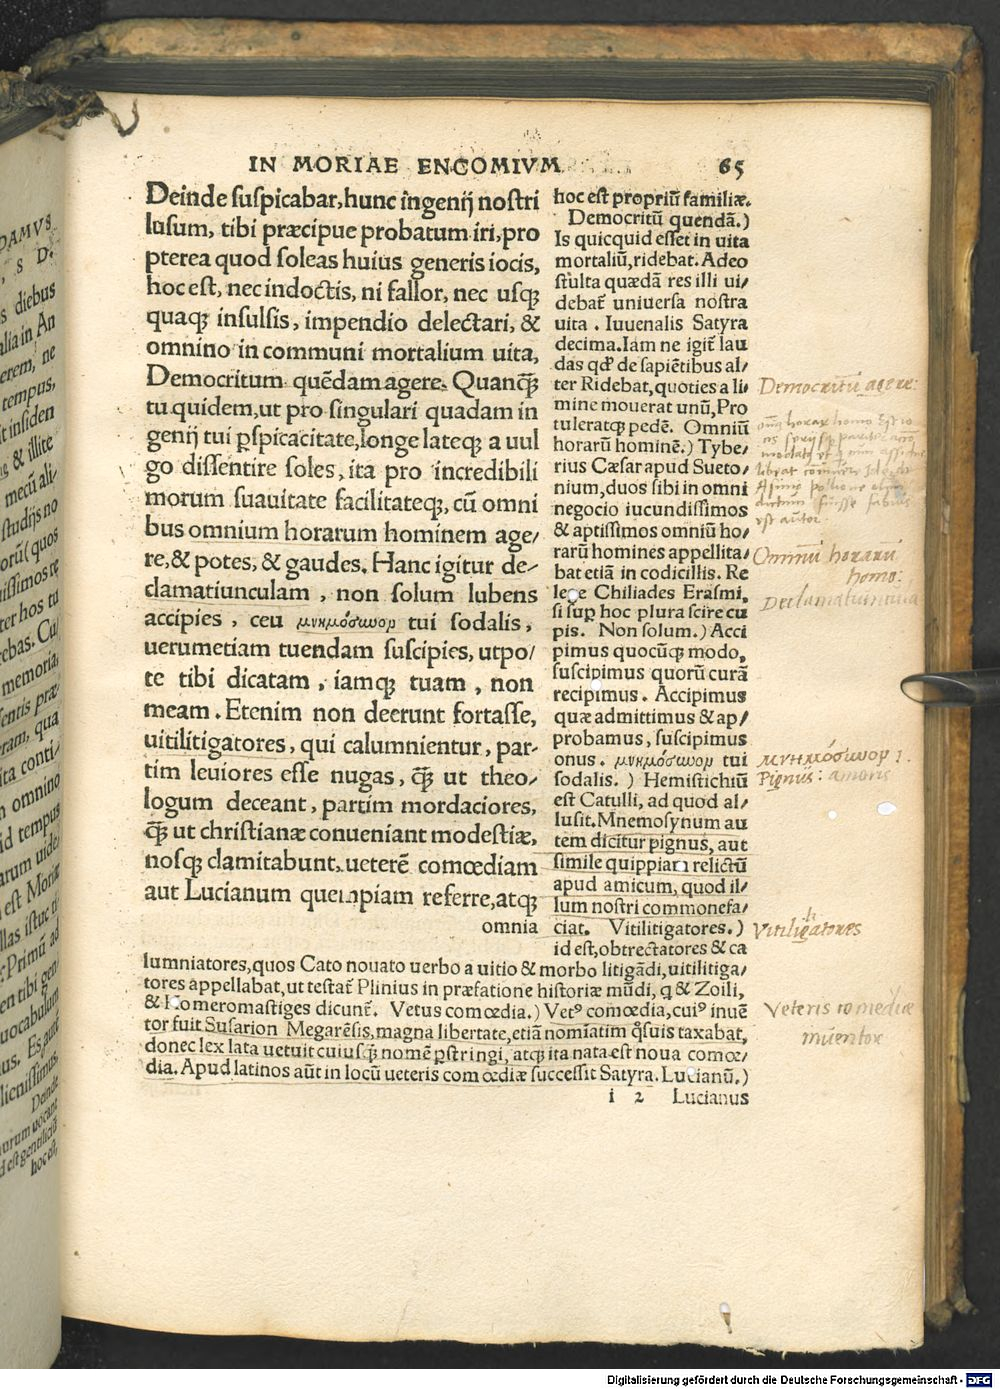 IN MORIAE ENCOMIVM 65
Deinde suspicabar, hunc ingenij nostri
lusum, tibi præcipue probatum iri, pro
pterea quod soleas huius generis iocis,
hoc est, nec indoctis, ni fallor, nec usqꝫ
quaqꝫ insulsis, impendio delectari, &
omnino in communi mortalium uita,
Democritum quēdam agere. Quanqꝫ̄
tu quidem, ut pro singulari quadam in
genij tui ꝑspicacitate, longe lateqꝫ a uul
go dissentire soles, ita pro incredibili
morum suauitate facilitateqꝫ, cū omni
bus omnium horarum hominem age/
re, & potes, & gaudes. Hanc igitur de/
clamatiunculam, non solum lubens
accipies, ceu μνημόσυνον tui sodalis,
uerumetiam tuendam suscipies, utpo/
te tibi dicatam, iamqꝫ tuam, non
meam. Etenim non deerunt fortasse,
uitilitigatores, qui calumnientur, par-
tim leuiores esse nugas, qꝫ̄ ut theo/
logum deceant, partim mordaciores,
qꝫ̄ ut christianæ conueniant modestiæ,
nosqꝫ clamitabunt, ueterē comœdiam
aut Lucianum quempiam referre, atqꝫ
omnia
hoc est propriū familiæ.
Democritū quendā.)
Is quicquid esset in uita
mortaliū, ridebat. Adeo
stulta quædā res illi ui/
debat᷑ uniuersa nostra
uita. Iuuenalis Satyra
decima. Iam ne igit᷑ lau
das qđ de sapiētibus al/
ter Ridebat, quoties a li/
mine mouerat unū, Pro
tuleratqꝫ pedē. Omniū
horarū hominē.) Tybe/
rius Cæsar apud Sueto/
nium, duos sibi in omni
negocio iucundissimos
& aptissimos omniū ho/
rarū homines appellita/
bat etiā in codicillis. Re
lege Chiliades Erasmi,
si suꝑ hoc plura scire cu
pis. Non solum.) Acci
pimus quocūqꝫ modo,
suscipimus quorū curā
recipimus. Accipimus
quæ admittimus & ap/
probamus, suscipimus
onus. μνημόσυνον tui
sodalis.) Hemistichiū
est Catulli, ad quod al/
lusit. Mnemosynum au
tem dicitur pignus, aut
simile quippiam relictū
apud amicum, quod il/
lum nostri commonefa/
ciat. Vitilitigatores.)
id est, obtrectatores & ca
lumniatores, quos Cato nouato uerbo a uitio & morbo litigādi, uitilitiga/
tores appellabat, ut testat᷑ Plinius in præfatione historiæ mūdi, q & Zoili,
& Homeromastiges dicunt᷑. Vetus comœdia.) Vetꝰ comœdia, cuiꝰ inuē
tor fuit Susarion Megarēsis, magna libertate, etiā nomīatim q̊suis taxabat,
donec lex lata uetuit cuiusqꝫ̄ nomē ꝑstringi, atqꝫ ita nata est noua comœ/
dia. Apud latinos aūt in locū ueteris comœdiæ successit Satyra. Lucianū.)
i 2 Lucianus
Democritū agere:
Omniū horarū
homo:
Declamatiuncula
μνημόσυνον .i.
Pignus: amoris
Vitiligatores
li
Veteris comediæ
inuentor
DAMVS
S D.
s diebus
alia in An
erem, ne
tempus,
it insiden
& illite
mecū ali-
studijs no
orū (quos
ter hos tu
memoria,
sentis præ-
eram, qua
ita conti/
omnino
id tempus
est Moriæ
llas istuc ti
Primū ad
en tibi gen
uocabulum
licnissimus,
Deinde
d est gentiliciū
hoc est,
Digitalisierung gefördert durch die Deutsche Forschungsgemeinschaft - DFG